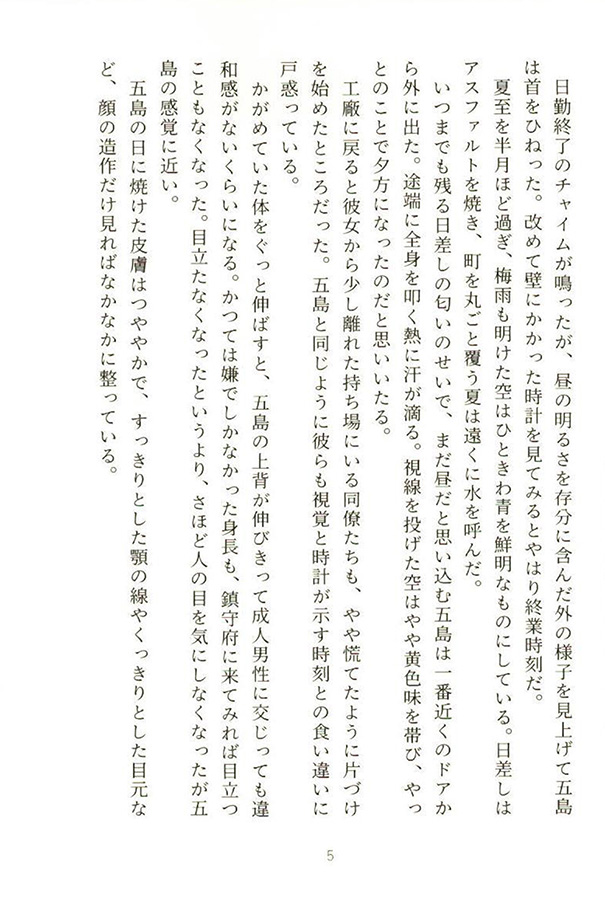 日勤終了のチャイムが鳴ったが、昼の明るさを存分に含んだ外の様子を見上げて五島
は首をひねった。改めて壁にかかった時計を見てみるとやはり終業時刻だ。
　夏至を半月ほど過ぎ、梅雨も明けた空はひときわ青を鮮明なものにしている。日差しは
アスファルトを焼き、町を丸ごと覆う夏は遠くに水を呼んだ。
　いつまでも残る日差しの匂いのせいで、まだ昼だと思い込む五島は一番近くのドアか
ら外に出た。途端に全身を叩く熱に汗が滴る。視線を投げた空はやや黄色味を帯び、やっ
とのことで夕方になったのだと思いいたる。
　工廠に戻ると彼女から少し離れた持ち場にいる同僚たちも、やや慌てたように片づけ
を始めたところだった。五島と同じように彼らも視覚と時計が示す時刻との食い違いに
戸惑っている。
　かがめていた体をぐっと伸ばすと、五島の上背が伸びきって成人男性に交じっても違
和感がないくらいになる。かつては嫌でしかなかった身長も、鎮守府に来てみれば目立つ
こともなくなった。目立たなくなったというより、さほど人の目を気にしなくなったが五
島の感覚に近い。
　五島の日に焼けた皮膚はつややかで、すっきりとした顎の線やくっきりとした目元な
ど、顔の造作だけ見ればなかなかに整っている。
5